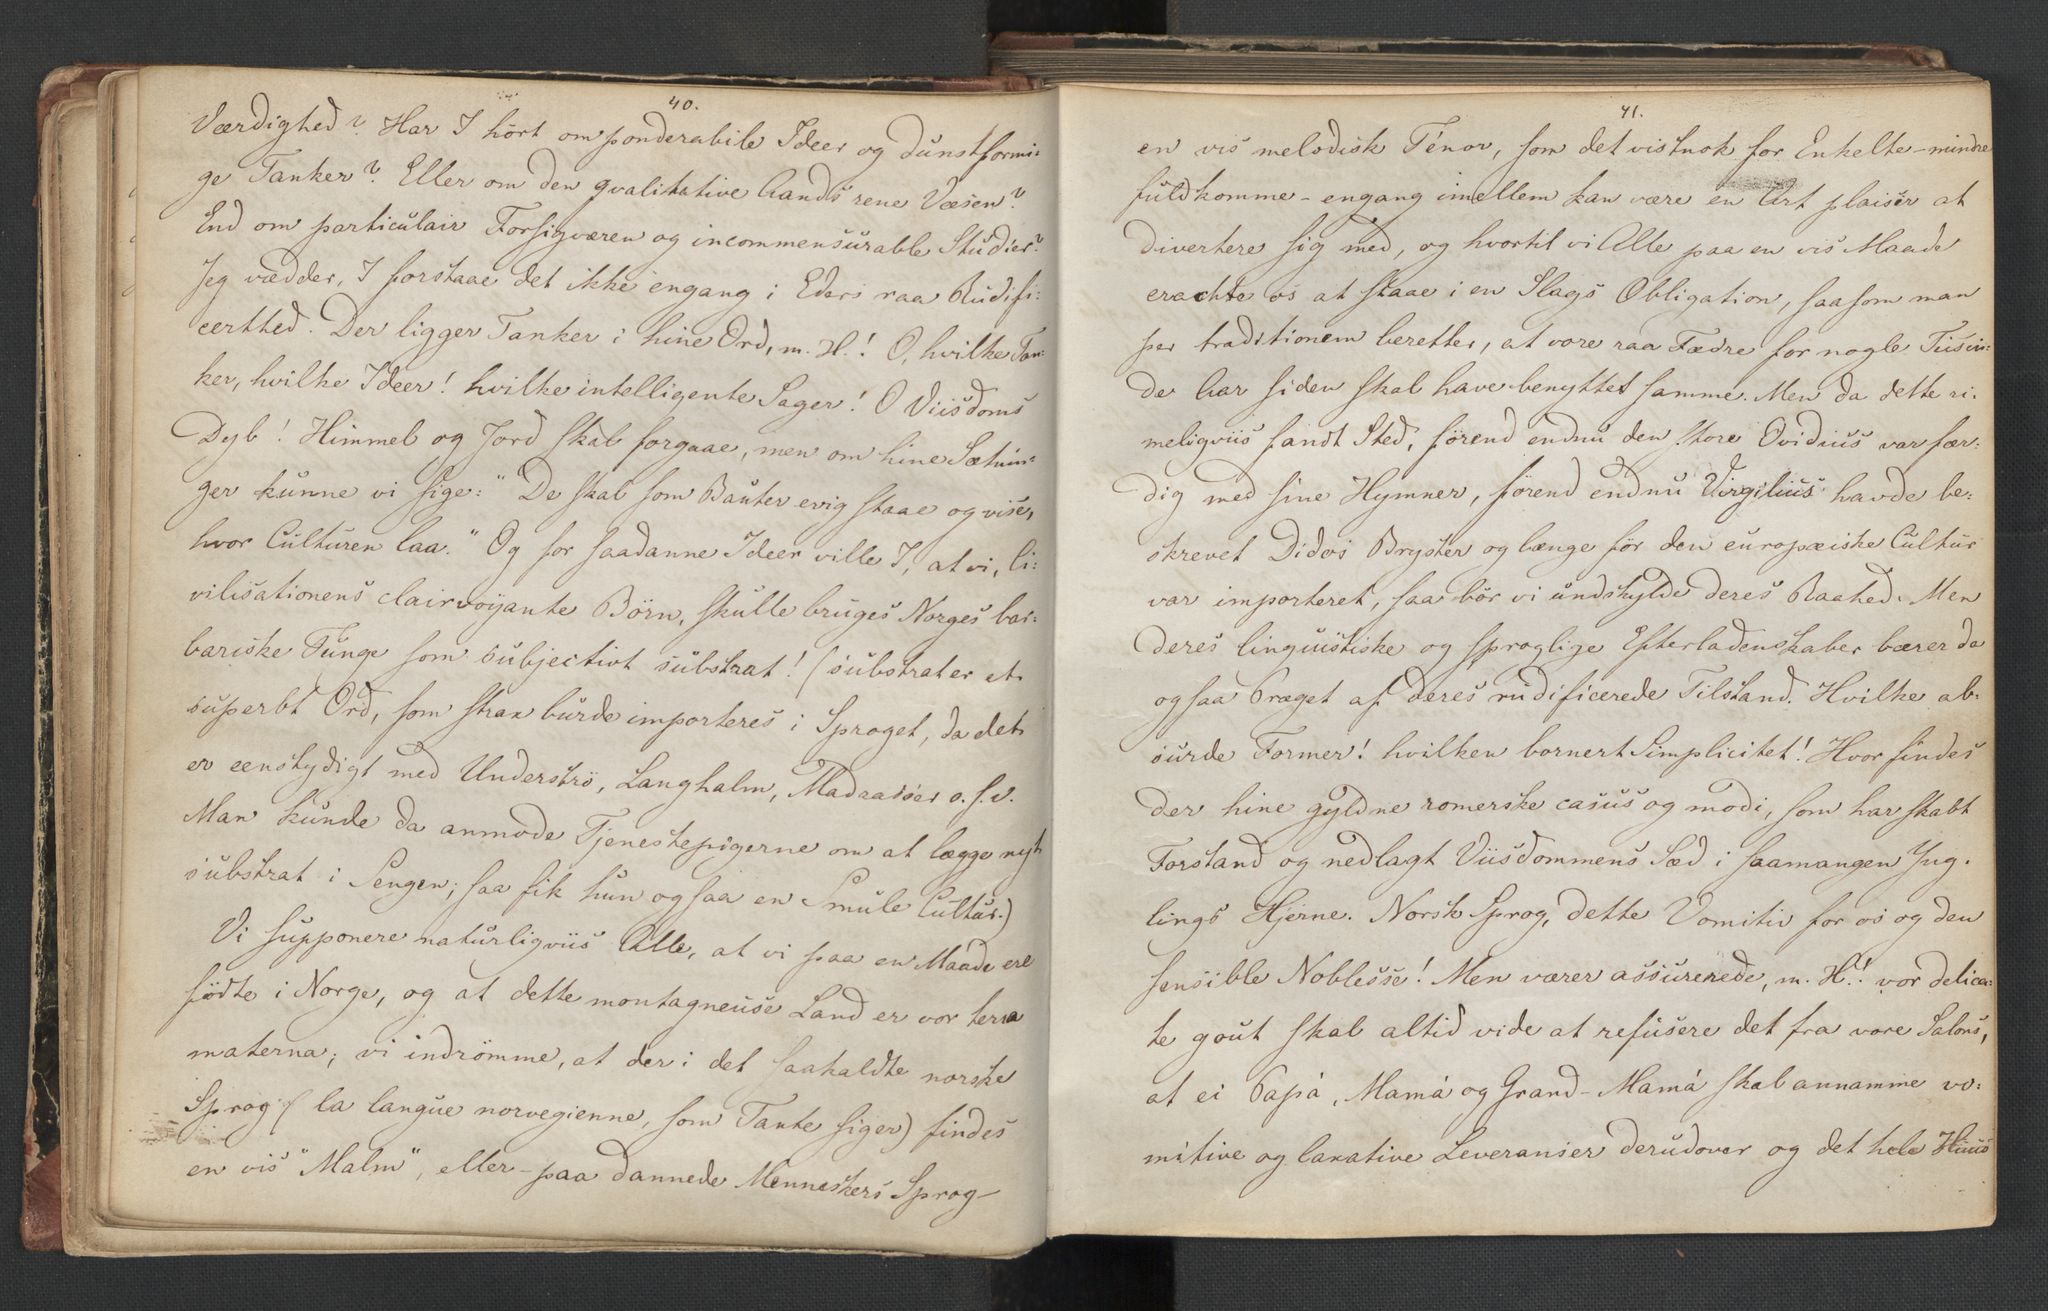 40.
Værdighed? Har I hört om ponderabile Ideer og dunstformi:
ge Tanker? Eller om den qvalitative Aands rene Væsen?
End om particulair Forsigværen og incommensurable Studier?
Jeg vædder, I forstaae det ikke engang i Eders raa Rudifi:
certhed. Der ligger Tanker i hine Ord, m. H.! O, hvilke Tan:
ker, hvilke Ideer! hvilke intelligente Sager! O Viisdoms
Dyb! Himmel og Jord skal forgaae, men om hine Sætnin:
ger kunne vi sige: "De skal som Bauter evig staae og vise,
hvor Culturen laa." Og for saadanne Ideer ville I, at vi, Ci:
vilisationens clairvoyante Börn, skulle bruges Norges bar:
bariske Tunge som subjectivt substrat! (substrat er et
superbt Ord, som strax burde importeres i Sproget, da det
er eenstydigt med Underströ, Langhalm, Madrasser o. s. v.
Man kunde da anmode Tjenestepigerne om at lægge nyt
substrat i Sengen; saa fik hun ogsaa en Smule Cultur.)
Vi supponere naturligviis Alle, at vi paa en Maade ere
födte i Norge, og at dette montagneuse Land er vor terra
materna; vi indrömme, at der i det saakaldte norske
Sprog (la langue norvegienne, som Tante siger) findes
en vis "Malm", eller - paa dannede Menneskers Sprog -
41.
en vis melodisk Ténor, som det vistnok for Enkelte - mindre
fuldkomme - engang imellem kan være en Art plaisir at
divertere sig med, og hvortil vi Alle paa en vis Maade
erachte os at staae i en Slags Obligation, saasom man
per traditionem beretter, at vore raa Fædre for nogle Tusin:
de Aar siden skal have benyttet samme. Men da dette ri:
meligviis fandt Sted, förend endnu den store Ovidius var fær:
dig med sine Hymner, förend endnu Virgilius havde be:
skrevet Didos Bryster og længe för den europæiske Cultur
var importeret, saa bör vi undskylde deres Raahed. Men
deres linguistiske og sproglige Efterladenskaber bærer da
ogsaa Præget af deres rudificerede Tilstand. Hvilke ab:
surde Former! hvilken bornert Simplicitet! Hvor findes
der hine gyldne romerske casus og modi, som har skabt
Forstand og nedlagt Viisdommens Sæd i saamangen Yng.
lings Hjerne. Norsk Sprog, dette Vomitiv for os og den
sensible Noblesse! Men værer assurerede, m. H.! vor delica:
te gout skal altid vide at refusere det fra vore Salons,
at ei Papá, Mamá og Grand-Mamá skal annamme vo:
mitive og laxative Leveranser derudover og det hele Huus